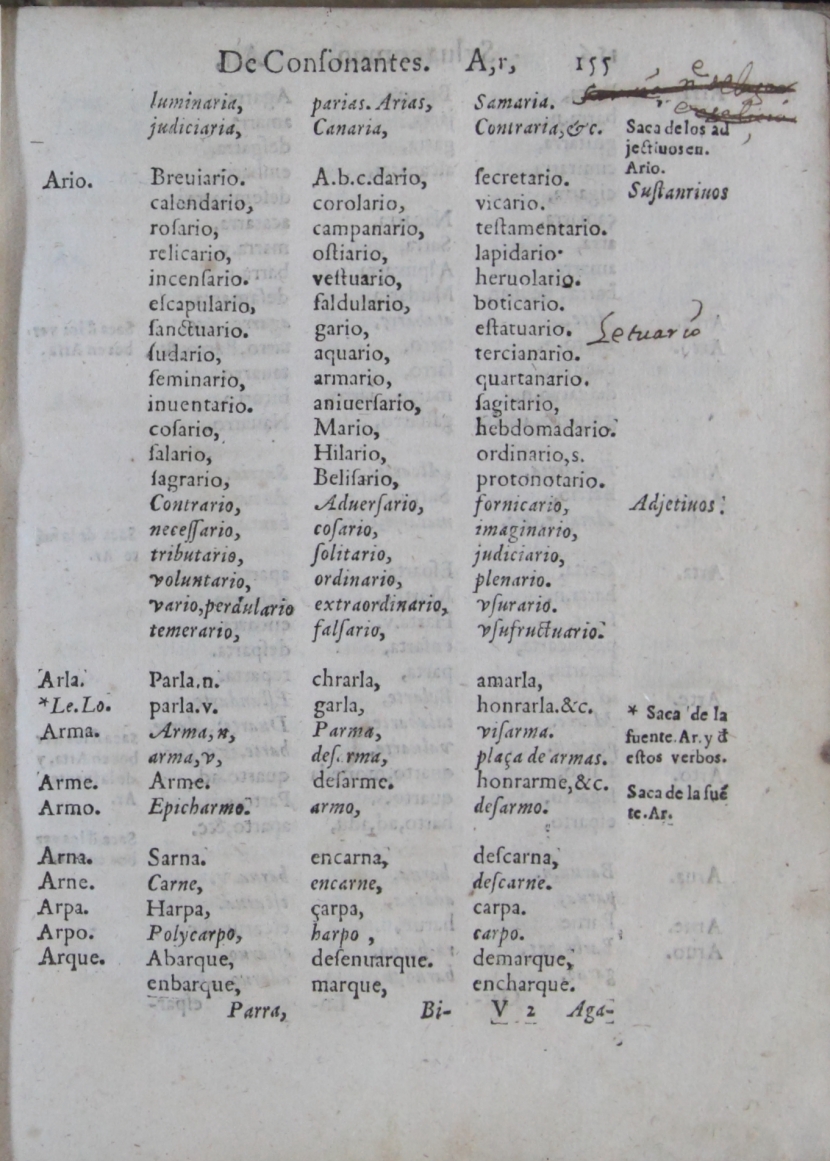 De Conſonantes. A,r, 155
luminaria, parias. Arias, Samaria.
judiciaria, Canaria, Contraria,&c. Saca de los ad
jectiuos en.
Ario.
Ario. Breuiario. A.b.c.dario, ſecretario.
Suſtanriuos
calendario, corolario, vicario.
roſario, campanario, teſtamentario.
relicario, oſtiario, lapidario.
incenſario. veſtuario, heruolario.
eſcapulario, faldulario, boticario.
ſanctuario. gario, eſtatuario. Letuario
ſudario, aquario, tercianario.
ſeminario, armario, quartanario.
inuentario. aniuerſario, ſagitario,
coſario, Mario, hebdomadario.
ſalario, Hilario, ordinario,s.
ſagrario, Beliſario, protonotario.
Contrario, Aduerſario, fornicario, Adjetiuos.
neceſſario, coſario, imaginario,
tributario, ſolitario, judiciario,
voluntario, ordinario, plenario.
vario,perdulario extraordinario, vſurario.
temerario, falſario, vſufructuario.
Arla. Parla.n. chrarla, amarla,
*Le.Lo. parla.v. garla, honrarla.&c. * Saca de la
Arma. Arma,n, Parma, viſarma. fuente.Ar.y đ
arma,v, deſ.rma, plaça de armas. eſtos verbos.
Arme. Arme. deſarme. honrarme,&c. Saca de la fuē
Armo. Epicharmo. armo, deſarmo. te.Ar.
Arna. Sarna. encarna, deſcarna,
Arne. Carne, encarne, deſcarne.
Arpa. Harpa, çarpa, carpa.
Arpo. Polycarpo, harpo, carpo.
Arque. Abarque, deſenuarque. demarque,
enbarque, marque, encharque.
Parra, Bi- V 2 Aga-